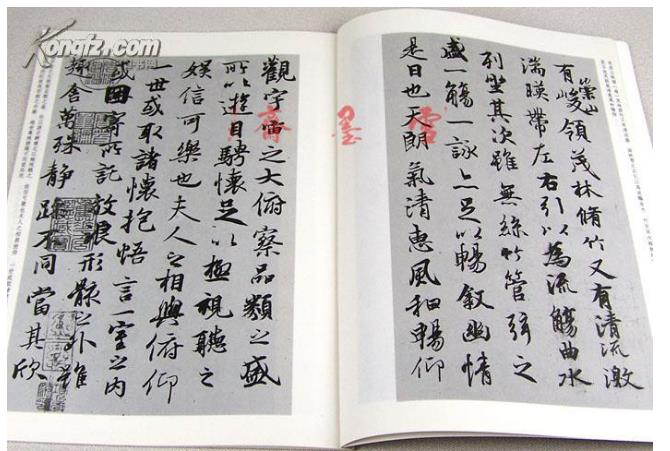 Kongfz.com
崇山
有峻領茂林脩竹又有清流激
湍暎帶左右引以為流觴曲水
列坐其次雖無絲竹管弦之
盛一觴一詠亦足以暢敘幽情
是日也天朗氣清惠風和暢仰
觀宇宙之大俯察品類之盛
所以遊目騁懷足以極視聽之
娛信可樂也夫人之相與俯仰
一世或取諸懷抱悟言一室之內
或因寄所託放浪形骸之外雖
趣舍萬殊靜躁不同當其欣